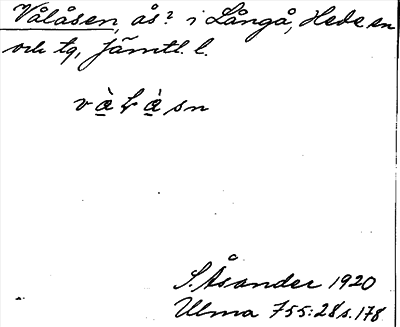 Vålåsen, ås? i Långå, Hede sn
och tg, Jämtl. l.
và̱ɫà̱sn
S. Åsander 1920
Ulma 755:28 s. 178